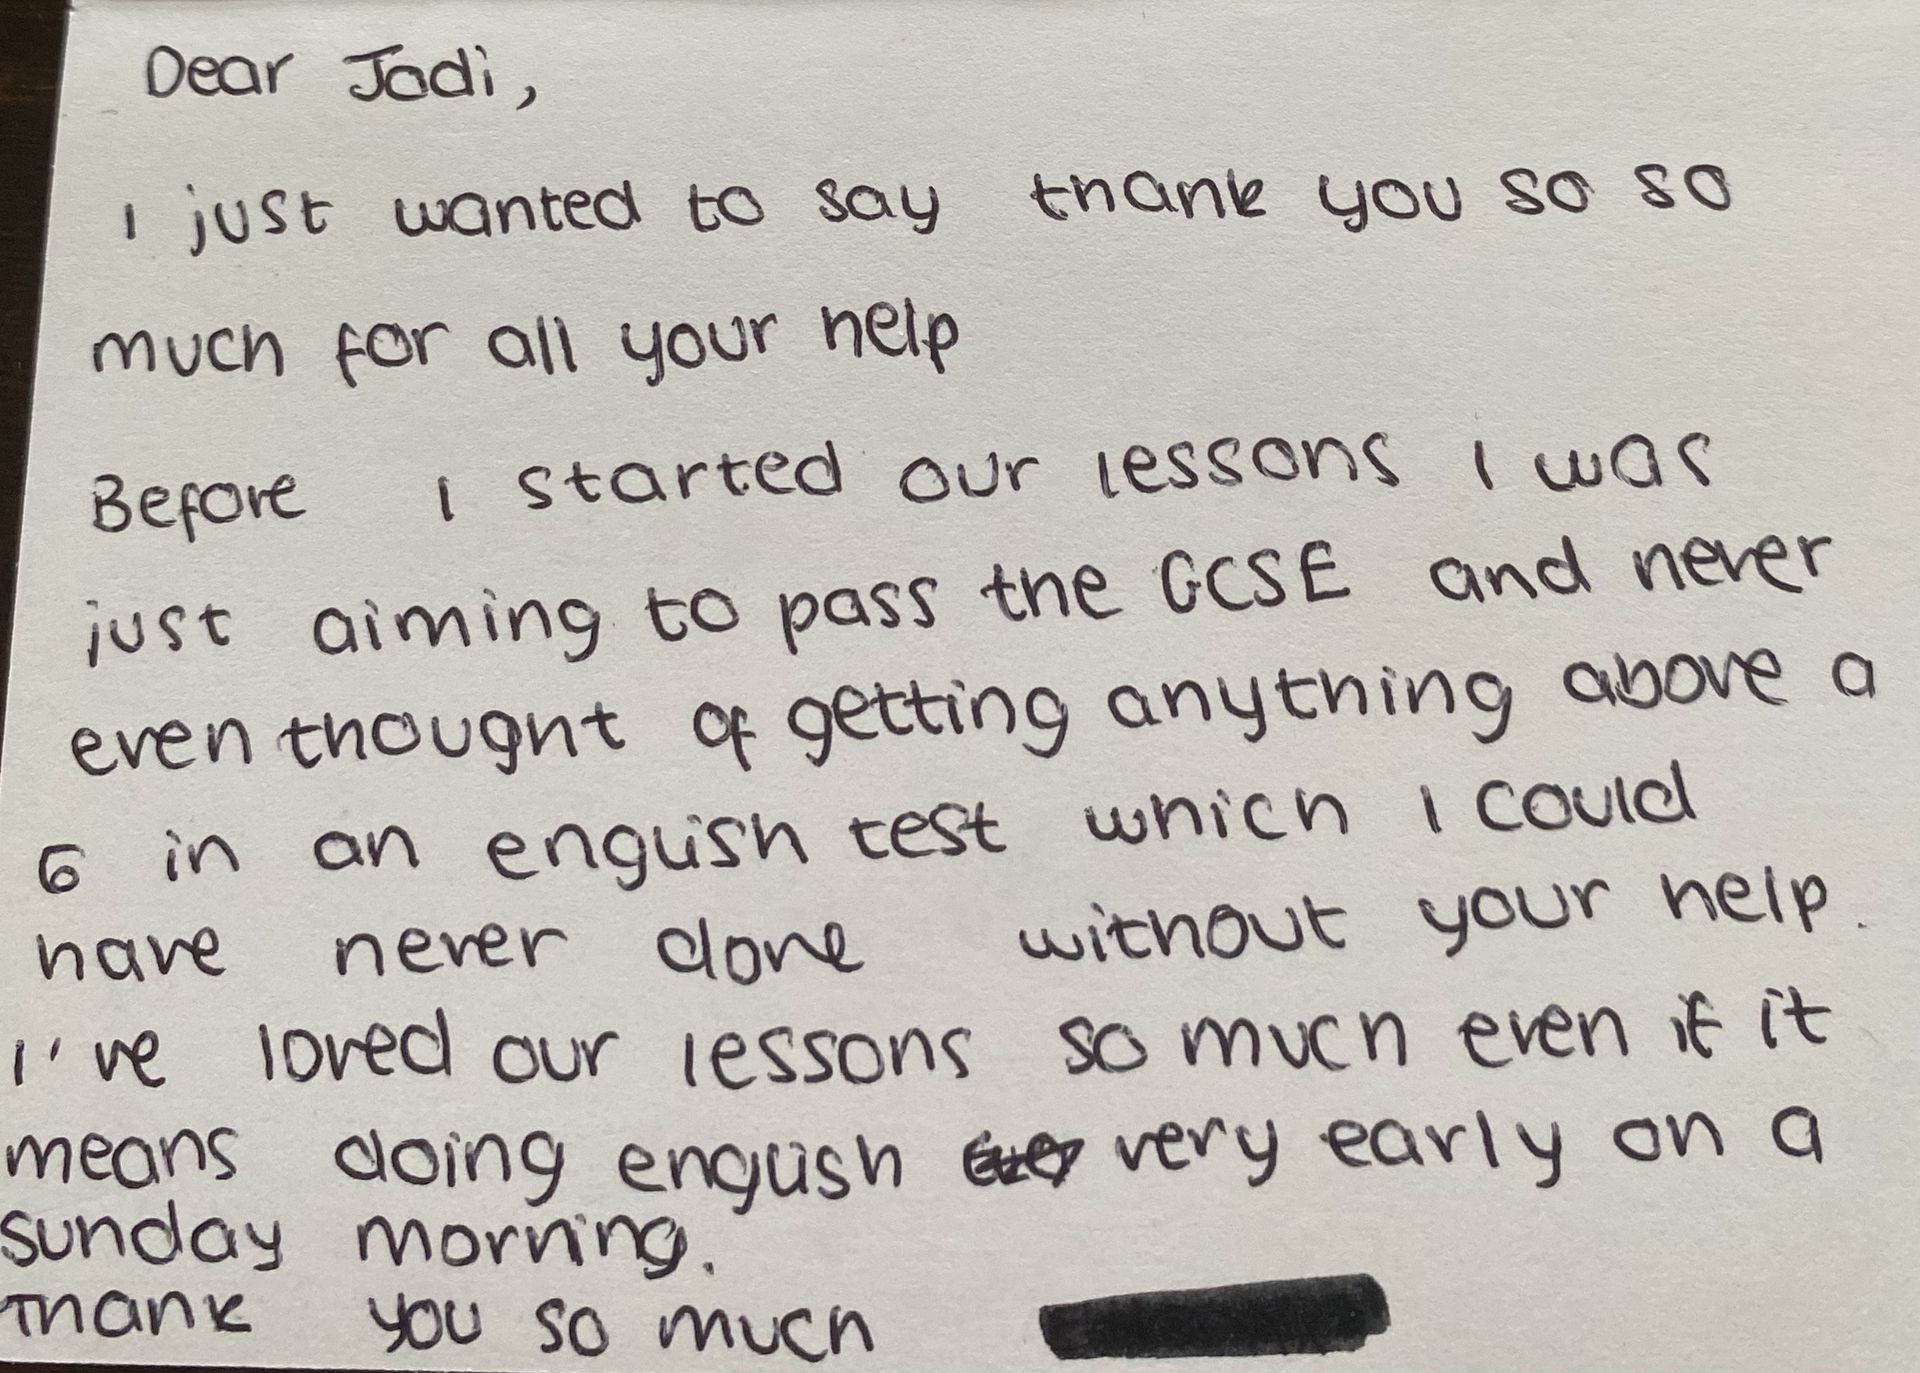 Dear Jodi,
I just wanted to say thank you so so
much for all your help
Before I started our lessons I was
just aiming to pass the GCSE and never
even thought of getting anything above a
6 in an english test which I could
have never done without your help.
I've loved our lessons so much even if it
means doing english very early on a
sunday morning.
Thank you so much